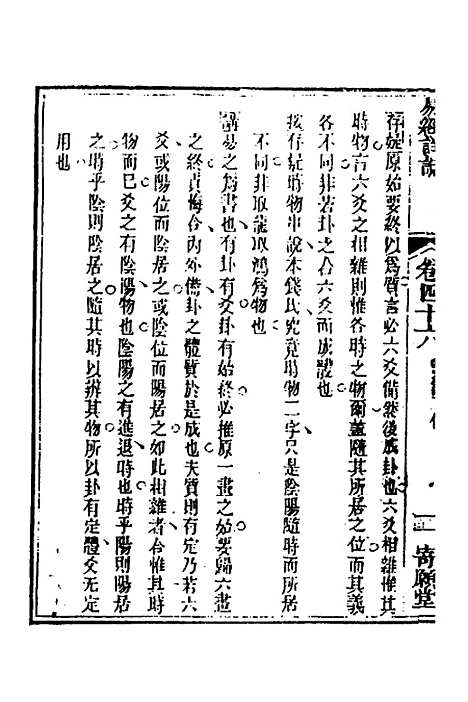 易經詳說
卷四十六
寄願堂
存疑原始要終以爲質言必六爻備然後成卦也六爻相雜惟其
時物言六爻之相雜則惟各時之物爾蓋隨其所居之位而其義
各不同非若卦之合六爻而成體也
按存疑時物串說本錢氏究竟時物二字只是陰陽隨時而所居
不同非取龍取鴻爲物也
講易之爲書也有卦有爻卦有始終必推原一畫之始要歸六畫
之終貞悔合內外備卦之體質於是成也夫質則有定乃若六
爻或陽位而陰居之或陰位而陽居之如此相雜者亦惟其時
物而已爻之有陰陽物也陰陽之有進退時也時乎陽則陽居
之時乎陰則陰居之隨其時以辨其物所以卦有定體爻无定
用也